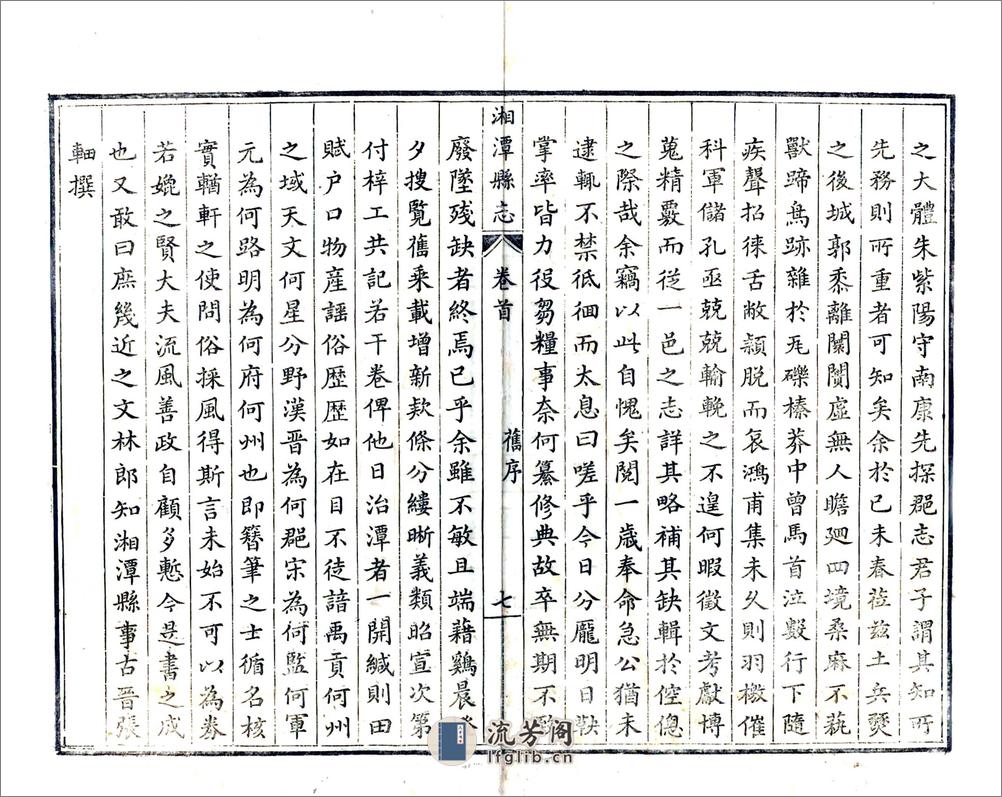 之大體朱紫陽守南康先探郡志君子謂其知所
先務則所重者可知矣余於己未春莅兹土兵燹
之後城郭黍離闤闠虛無人瞻廻四境桑麻不蓺
獸蹄鳥跡雜於瓦礫榛莽中曾馬首泣數行下隨
疾聲招徠舌敝頴脱而哀鴻甫集未久則羽檄催
科軍儲孔亟兢兢輸輓之不遑何暇徵文考獻博
蒐精覈而從一邑之志詳其略補其缺輯於倥傯
之際哉余竊以此自愧矣閱一歲奉命急公猶未
逮輒不禁低徊而太息曰嗟乎今日分龎明日鞅
掌率皆力役芻糧事奈何纂修典故卒無期不
湘潭縣志
卷首
舊序
七
廢墜殘缺者終焉已乎余雖不敏且端藉鷄晨
夕搜覽舊乘載增新款條分縷晰義類昭宣次第
付梓工共記若干卷俾他日治潭者一開緘則田
賦户口物産謡俗歷歷如在目不徒諳禹貢何州
之域天文何星分野漢晉為何郡宋為何監何軍
元為何路明為何府何州也即簪筆之士循名核
實輶軒之使問俗採風得斯言未始不可以為券
若媲之賢大夫流風善政自顧多慙今是書之成
也又敢曰庶幾近之文林郎知湘潭縣事古晉張
䡖撰
流芳阁
lfglib.cn